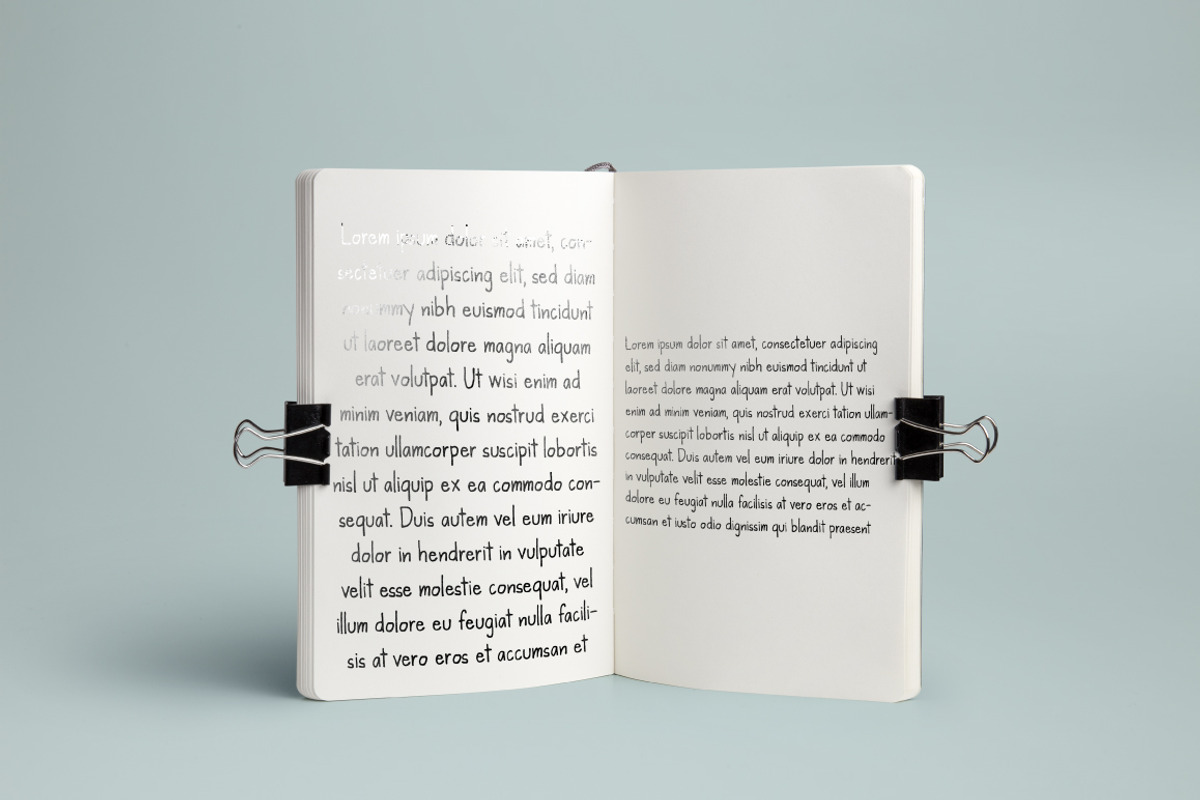 Lorem ipsum dolor sit amet, con-
sectetuer adipiscing elit, sed diam
nonummy nibh euismod tincidunt
ut laoreet dolore magna aliquam
erat volutpat. Ut wisi enim ad
minim veniam, quis nostrud exerci
tation ullamcorper suscipit lobortis
nisl ut aliquip ex ea commodo con-
sequat. Duis autem vel eum iriure
dolor in hendrerit in vulputate
velit esse molestie consequat, vel
illum dolore eu feugiat nulla facili-
sis at vero eros et accumsan et
Lorem ipsum dolor sit amet, consectetuer adipiscing
elit, sed diam nonummy nibh euismod tincidunt ut
laoreet dolore magna aliquam erat volutpat. Ut wisi
enim ad minim veniam, quis nostrud exerci tation ullam-
corper suscipit lobortis nisl ut aliquip ex ea commodo
consequat. Duis autem vel eum iriure dolor in hendrerit
in vulputate velit esse molestie consequat, vel illum
dolore eu feugiat nulla facilisis at vero eros et ac-
cumsan et iusto odio dignissim qui blandit praesent